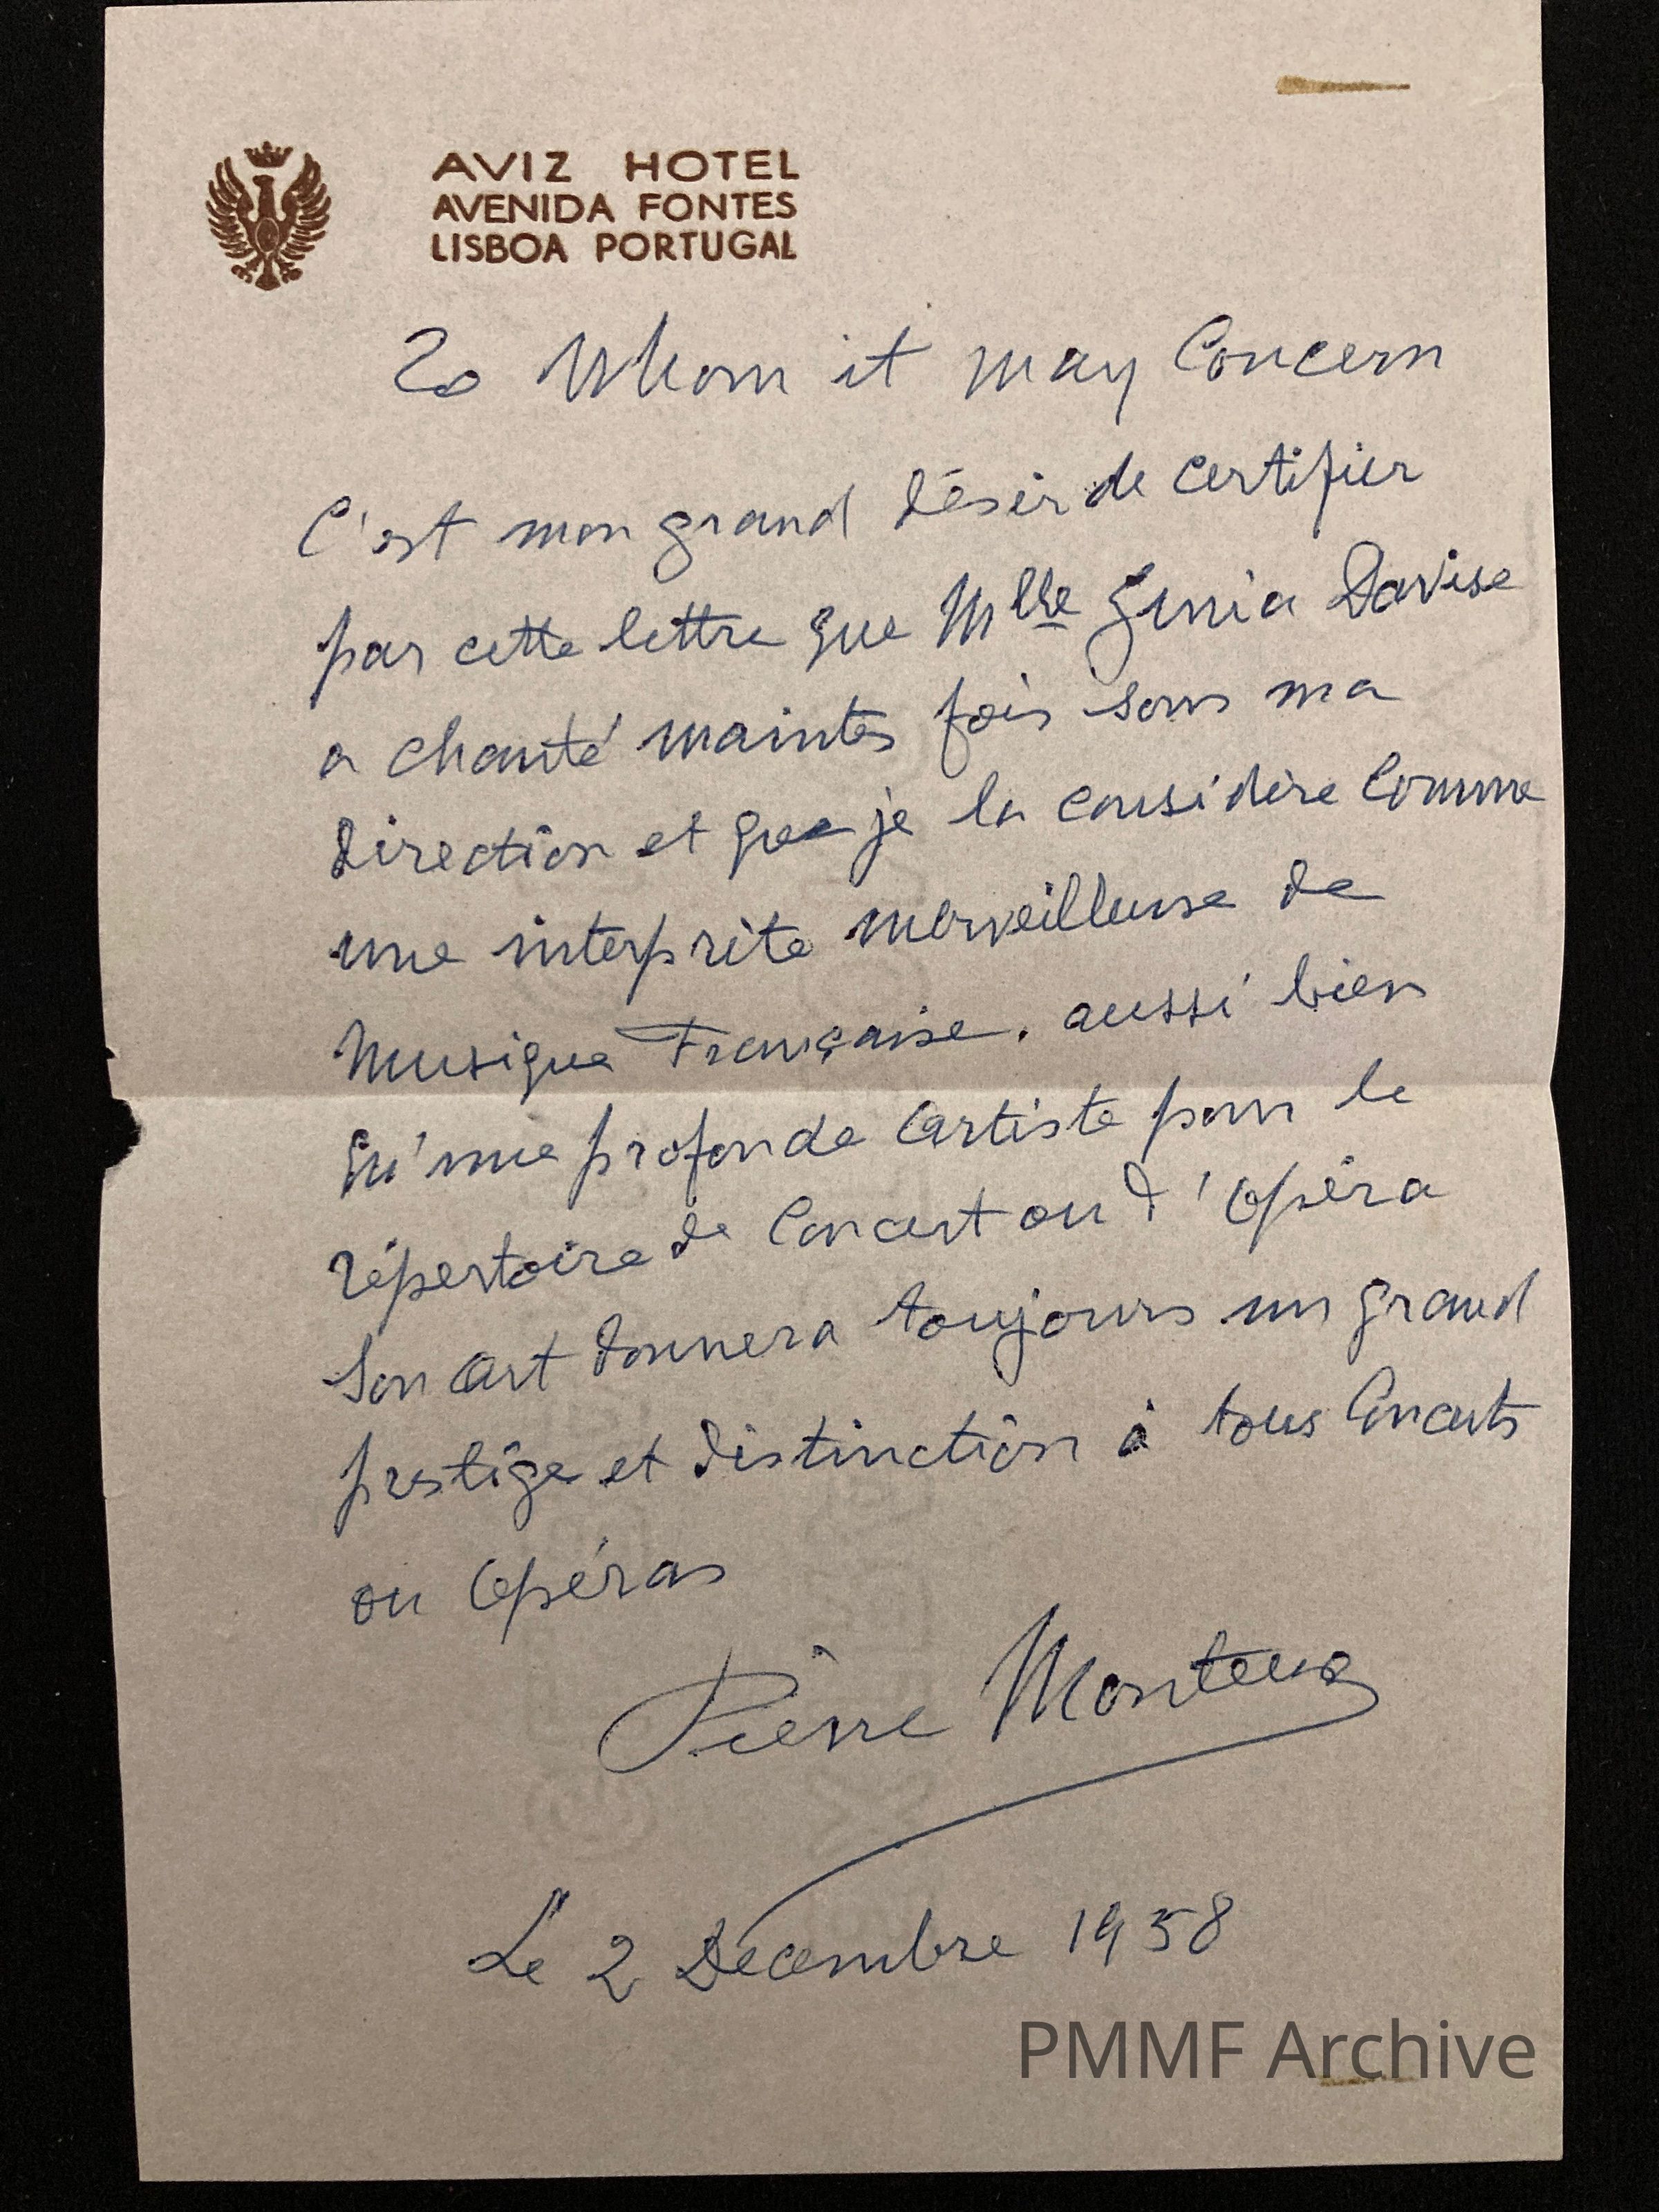 AVIZ HOTEL
AVENIDA FONTES
LISBOA PORTUGAL
To Whom it may Concern
C'est mon grand désir de certifier
par cette lettre que Mlle Genia Davise
a chanté maintes fois sous ma
direction et que je la considère comme
une interprète merveilleuse de
Musique Française. aussi bien
qu'une profonde artiste pour le
répertoire de Concert ou d'opéra
Son art donnera toujours un grand
prestige et distinction à tous Concerts
ou opéras
Pierre Monteux
Le 2 Decembre 1958
PMMF Archive